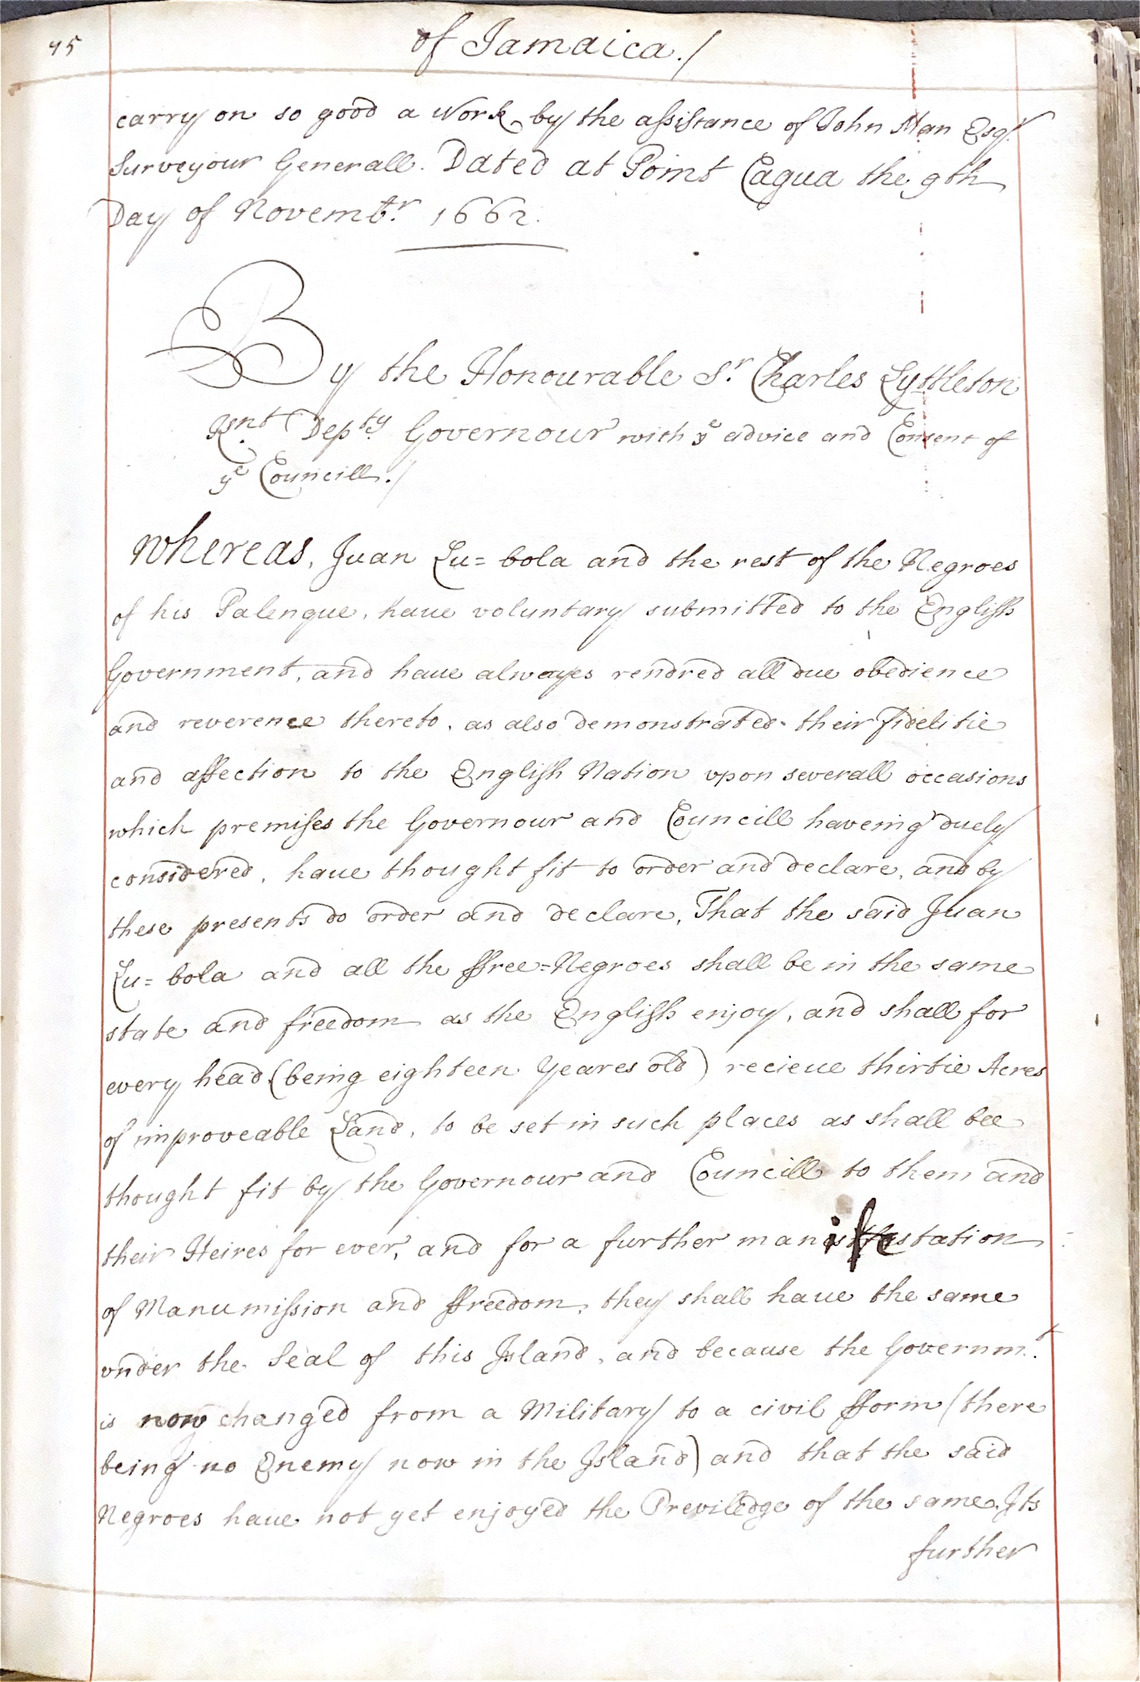 75
of Jamaica./
carry on so good a Work by the assistance of John Man Esqr.
Surveyour Generall. Dated at Point Cagua the 9th
Day of Novembr. 1662.
By the Honourable Sr. Charles Lyttleton
Knt. Depty. Governour with ye advice and Consent of
ye Councill./
Whereas, Juan Lu=bola and the rest of the Negroes
of his Palenque, haue voluntary submitted to the English
Government, and haue alwayes rendred all due obedience
and reverence thereto, as also demonstrated their fidelitie
and affection to the English Nation vpon severall occasions
which premises the Governour and Councill haveing duely
considered, haue thought fit to order and declare, and by
these presents do order and declare, That the said Juan
Lu=bola and all the ffree=Negroes shall be in the same
state and freedom as the English enjoy, and shall for
every head (being eighteen Yeares old) recieue thirtie Acres
of improveable Land, to be set in such places as shall bee
thought fit by the Governour and Councill to them and
their Heires for ever, and for a further manifestation
of Manumission and ffreedom, they shall haue the same
vnder the Seal of this Island, and because the Governmt.
is now changed from a Military to a civil fform (there
being no Enemy now in the Island) and that the said
Negroes haue not yet enjoyed the Previledge of the same, Its
further